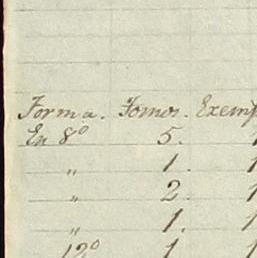 Forma. Tomos. Exemp
En 8º 5. 1
" 1. 1
" 2. 1
" 1. 1
12º 1 1